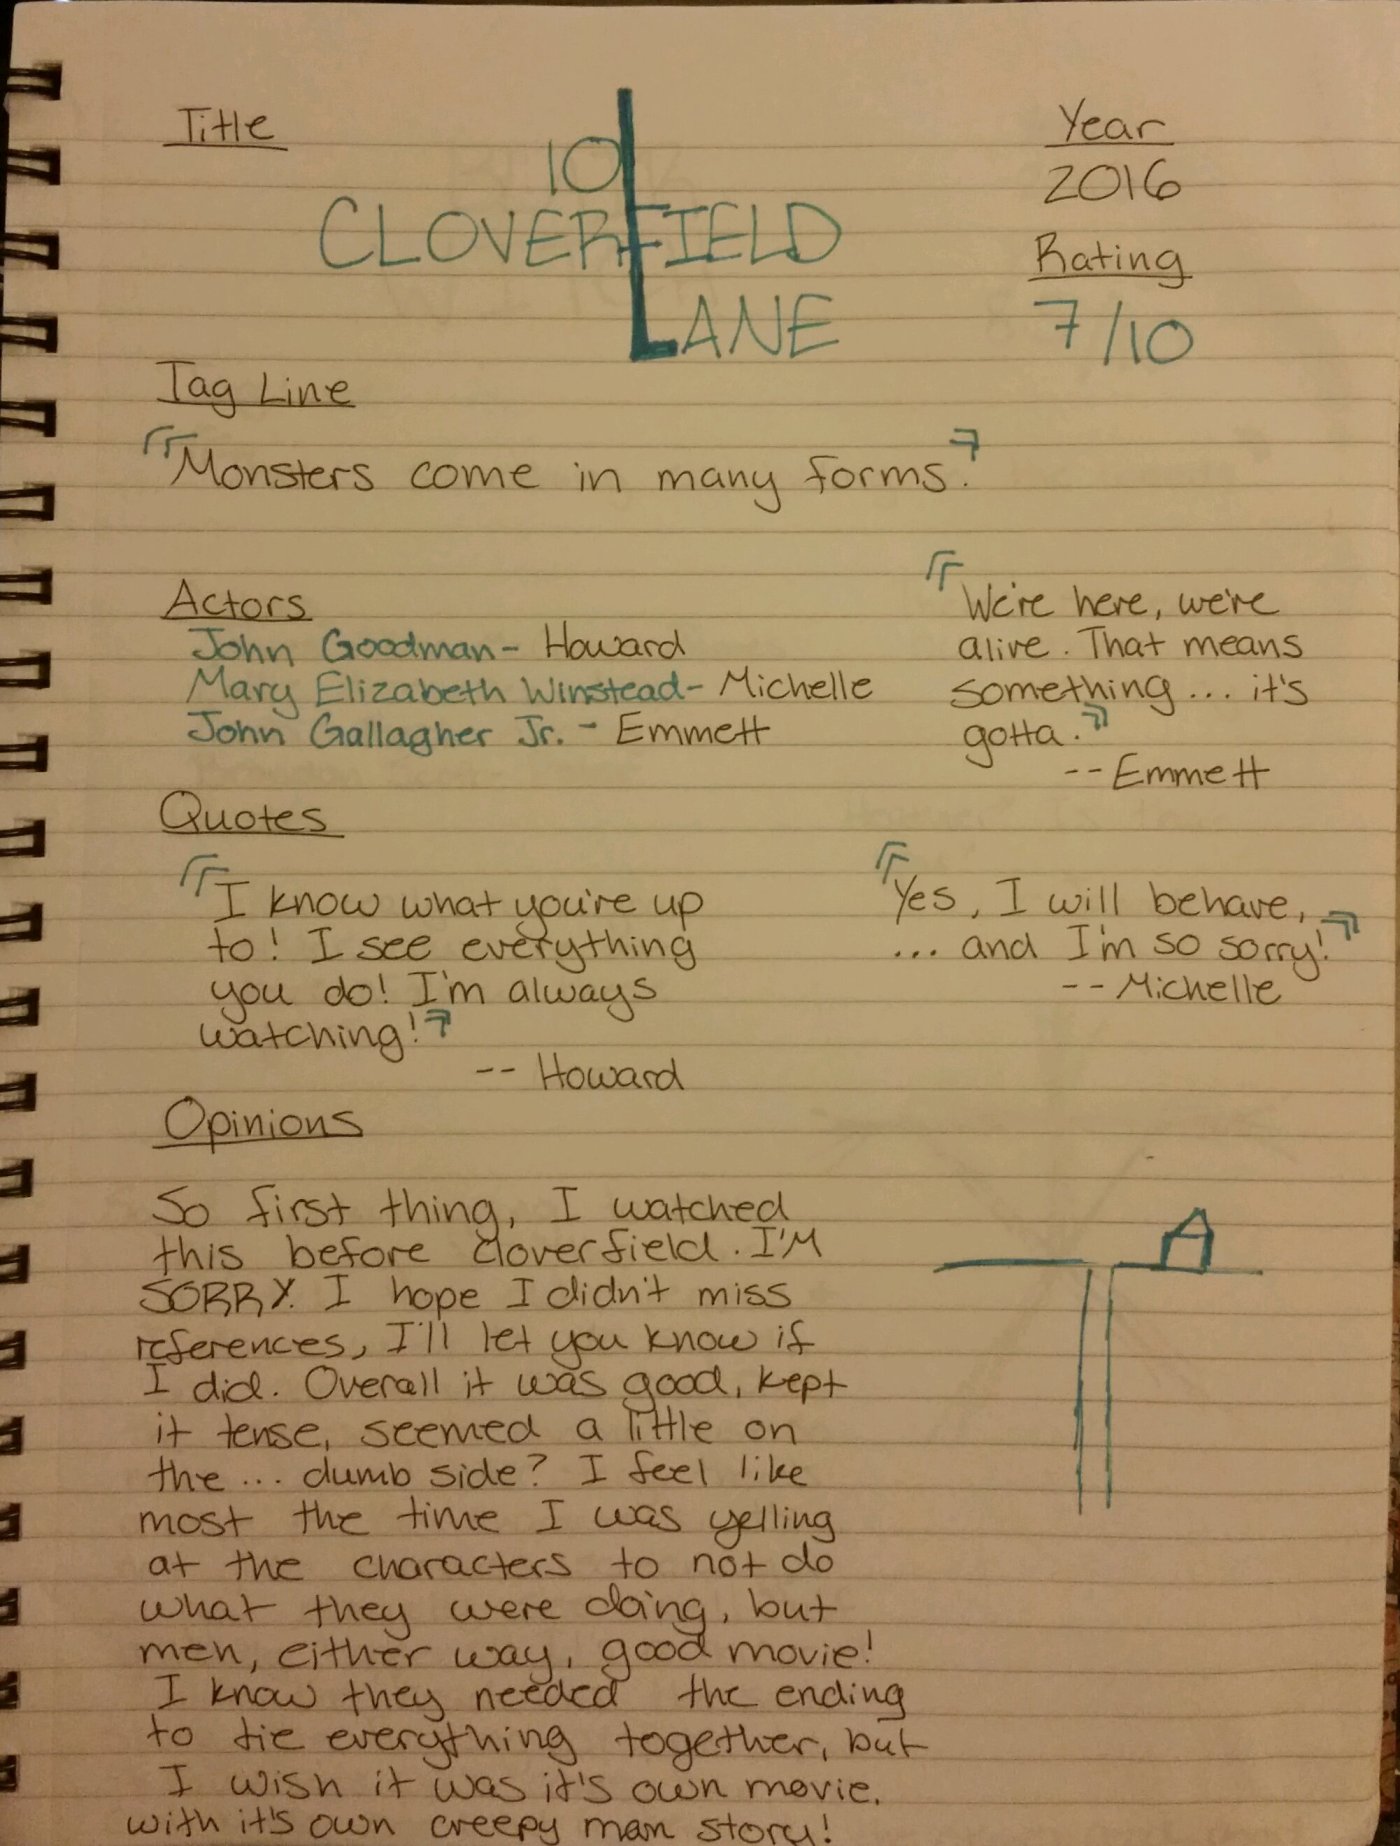 Title
10
CLOVERFIELD
LANE
Year
2016
Rating
7/10
Tag Line
"Monsters come in many forms."
Actors
John Goodman - Howard
Mary Elizabeth Winstead - Michelle
John Gallagher Jr. - Emmett
"We're here, we're
alive. That means
something... it's
gotta."
-- Emmett
Quotes
"I know what you're up
to! I see everything
you do! I'm always
watching!"
-- Howard
"Yes, I will behave,
... and I'm so sorry!"
-- Michelle
Opinions
So first thing, I watched
this before Cloverfield. I'M
SORRY. I hope I didn't miss
references, I'll let you know if
I did. Overall it was good, kept
it tense, seemed a little on
the... dumb side? I feel like
most the time I was yelling
at the characters to not do
what they were doing, but
meh, either way, good movie!
I know they needed the ending
to tie everything together, but
I wish it was it's own movie.
with it's own creepy man story!